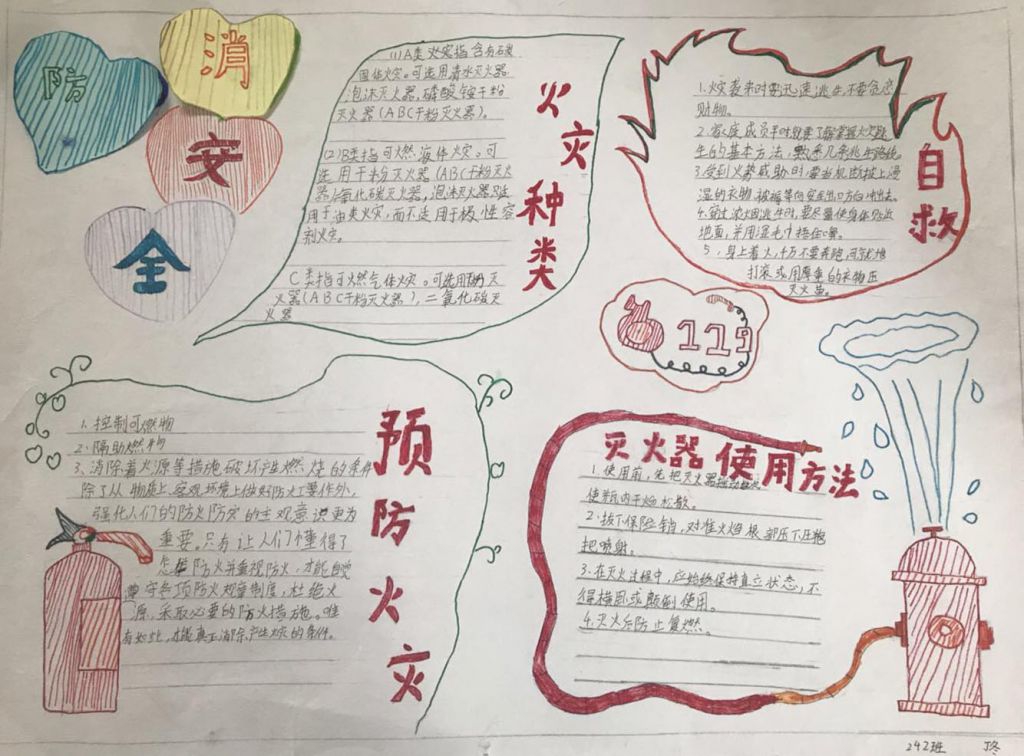 消
防
安
全
火灾种类
(1)A类火灾指含有碳
固体火灾。可选用清水灭火器
泡沫灭火器,磷酸铵干粉
灭火器(ABC干粉灭火器)。
(2)B类指可燃液体火灾。可
选用干粉灭火器(ABC干粉灭火
器)氧化碳灭火器,泡沫灭火器只适
用于油类火灾,而不适用于极性溶
剂火灾。
C类指可燃气体火灾。可选用干粉灭
火器(ABC干粉灭火器),二氧化碳灭
火器
自救
1.火灾袭来时要迅速逃生,不要贪恋
财物。
2.家庭成员平时就要了解掌握火灾逃
生的基本方法,熟悉几条逃生路线。
3.受到火势威胁时,要当机立断披上浸
湿的衣物,被褥等向安全出口方向冲出去。
4.穿过浓烟逃生时,要尽量使身体贴近
地面,并用湿毛巾捂住口鼻。
5,身上着火,千万不要奔跑,可就地
打滚或用厚重的衣物压
灭火苗。
119
预防火灾
1.控制可燃物
2.隔助燃物
3、消除着火源等措施破坏产生燃烧的条件
除了从物质上,客观环境上做好防火工作外,
强化人们的防火防灾的主观意识更为
重要。只有让人们懂得了
防火并重视防火,才能自觉
遵守各项防火规章制度,杜绝火
源,采取必要的防火措施。唯
有如此,才能真正消除产生火灾的条件。
灭火器使用方法
1.使用前,先把灭火器
使瓶内干粉松散。
2.拔下保险销,对准火焰根部压下压把
把喷射。
3.在灭火过程中,应始终保持直立状态,不
得横卧或颠倒使用。
4.灭火后防止复燃。
242班